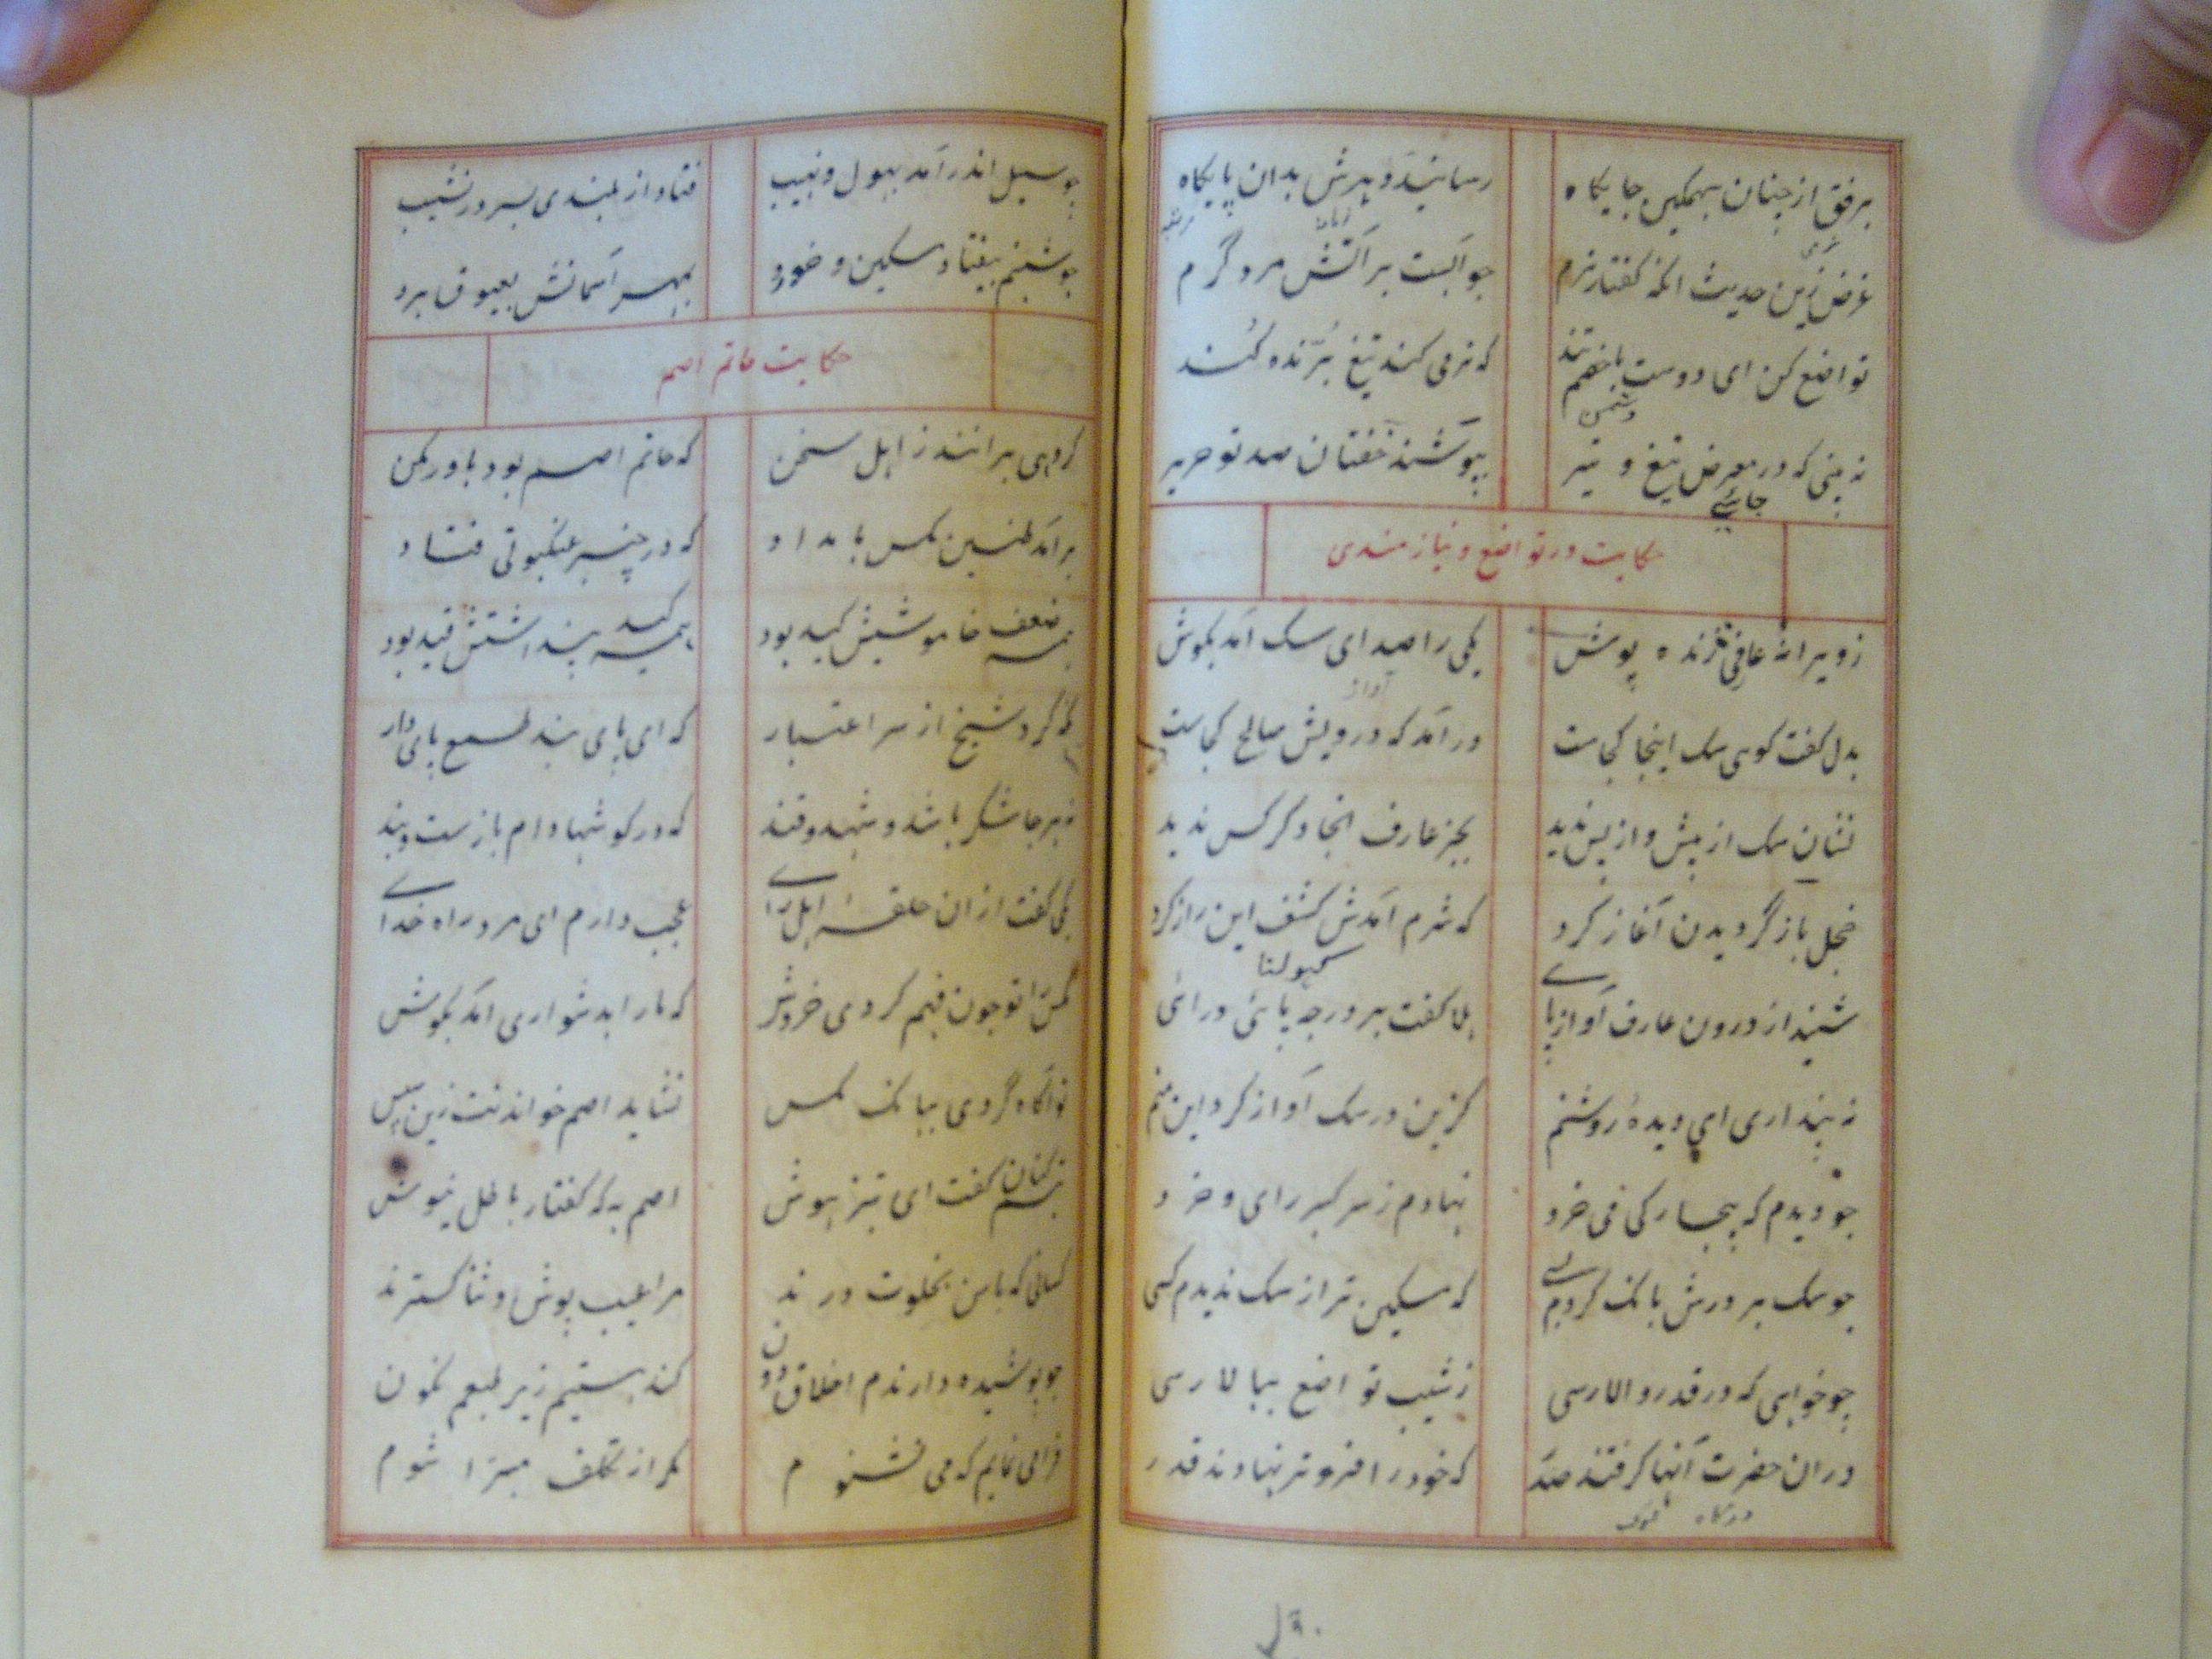 برفق از چنان سهمگین جایگاه رسانیده دهرش بدان پایگاه
غرض زین حدیث آنکه گفتار نرم چو آبست بر آتش مرد گرم
تواضع کن ای دوست با خصم تند که نرمی کند تیغ برّنده کُند
دشمن
نه بینی که در معرض تیغ و تیر بپوشند خفتان صد تو حریر
جائے
حکایت در تواضع و نیازمندی
ز ویرانهٔ عارفی ژنده پوش یکی را صدای سگ آمد بگوش
آواز
بدل گفت کوی سگ اینجا کجاست درآمد که درویش صالح کجاست
نشان سگ از پیش و از پس ندید بجز عارف آنجا دگر کس ندید
خجل باز گردیدن آغاز کرد که شرم آمدش کشف این راز کرد
شنید از درون عارف آواز پاے هلا گفت بر در چه پائی درائی
نه پنداری ای دیدهٔ روشنم کزین در سگ آواز کرد این منم
چو دیدم که بیچارگی می خرد نهادم ز سر کبر رای و خرد
چو سگ بر درش بانگ کردم بسے که مسکین تر از سگ ندیدم کسی
چو خواهی که در قدر والا رسی ز شیب تواضع ببالا رسی
دران حضرت آنها گرفتند صدر که خود را فروتر نهادند قدر
درگاه
چو سیل اندر آمد بهول و نهیب فتاد از بلندی بسر در نشیب
چو شبنم بیفتاد مسکین و خورد بمهر آسمانش بعیوق برد
حکایت حاتم اصم
گروهی برانند ز اهل سخن که حاتم اصم بود باور مکن
برآمد طنین مگس بامداد که در چنبر عنکبوتی فتاد
همه ضعف خاموشیش کید بود مگس قند پنداشتش قید بود
نگه کرد شیخ از سر اعتبار که ای پای بند طمع پای دار
نه هر جا شکر باشد و شهد و قند که در گوشها دام بازست و بند
یکی گفت ازان حلقهٔ اهل راے عجب دارم ای مرد راه خداے
مگس را تو چون فهم کردی خروش که ما را بدشواری آمد بگوش
تو آگاه گردی ببانگ مگس نشاید اصم خواندنت زین سپس
تبسم کنان گفت ای تیز هوش اصم به که گفتار باطل نیوش
کسانی که با من بخلوت درند مرا عیب پوش و ثنا گسترند
چو پوشیده دارندم اخلاق دون کند هستیم زیر طبعم نگون
فرا می نمایم که می نشنوم مگر از تکلف مبرّا شوم